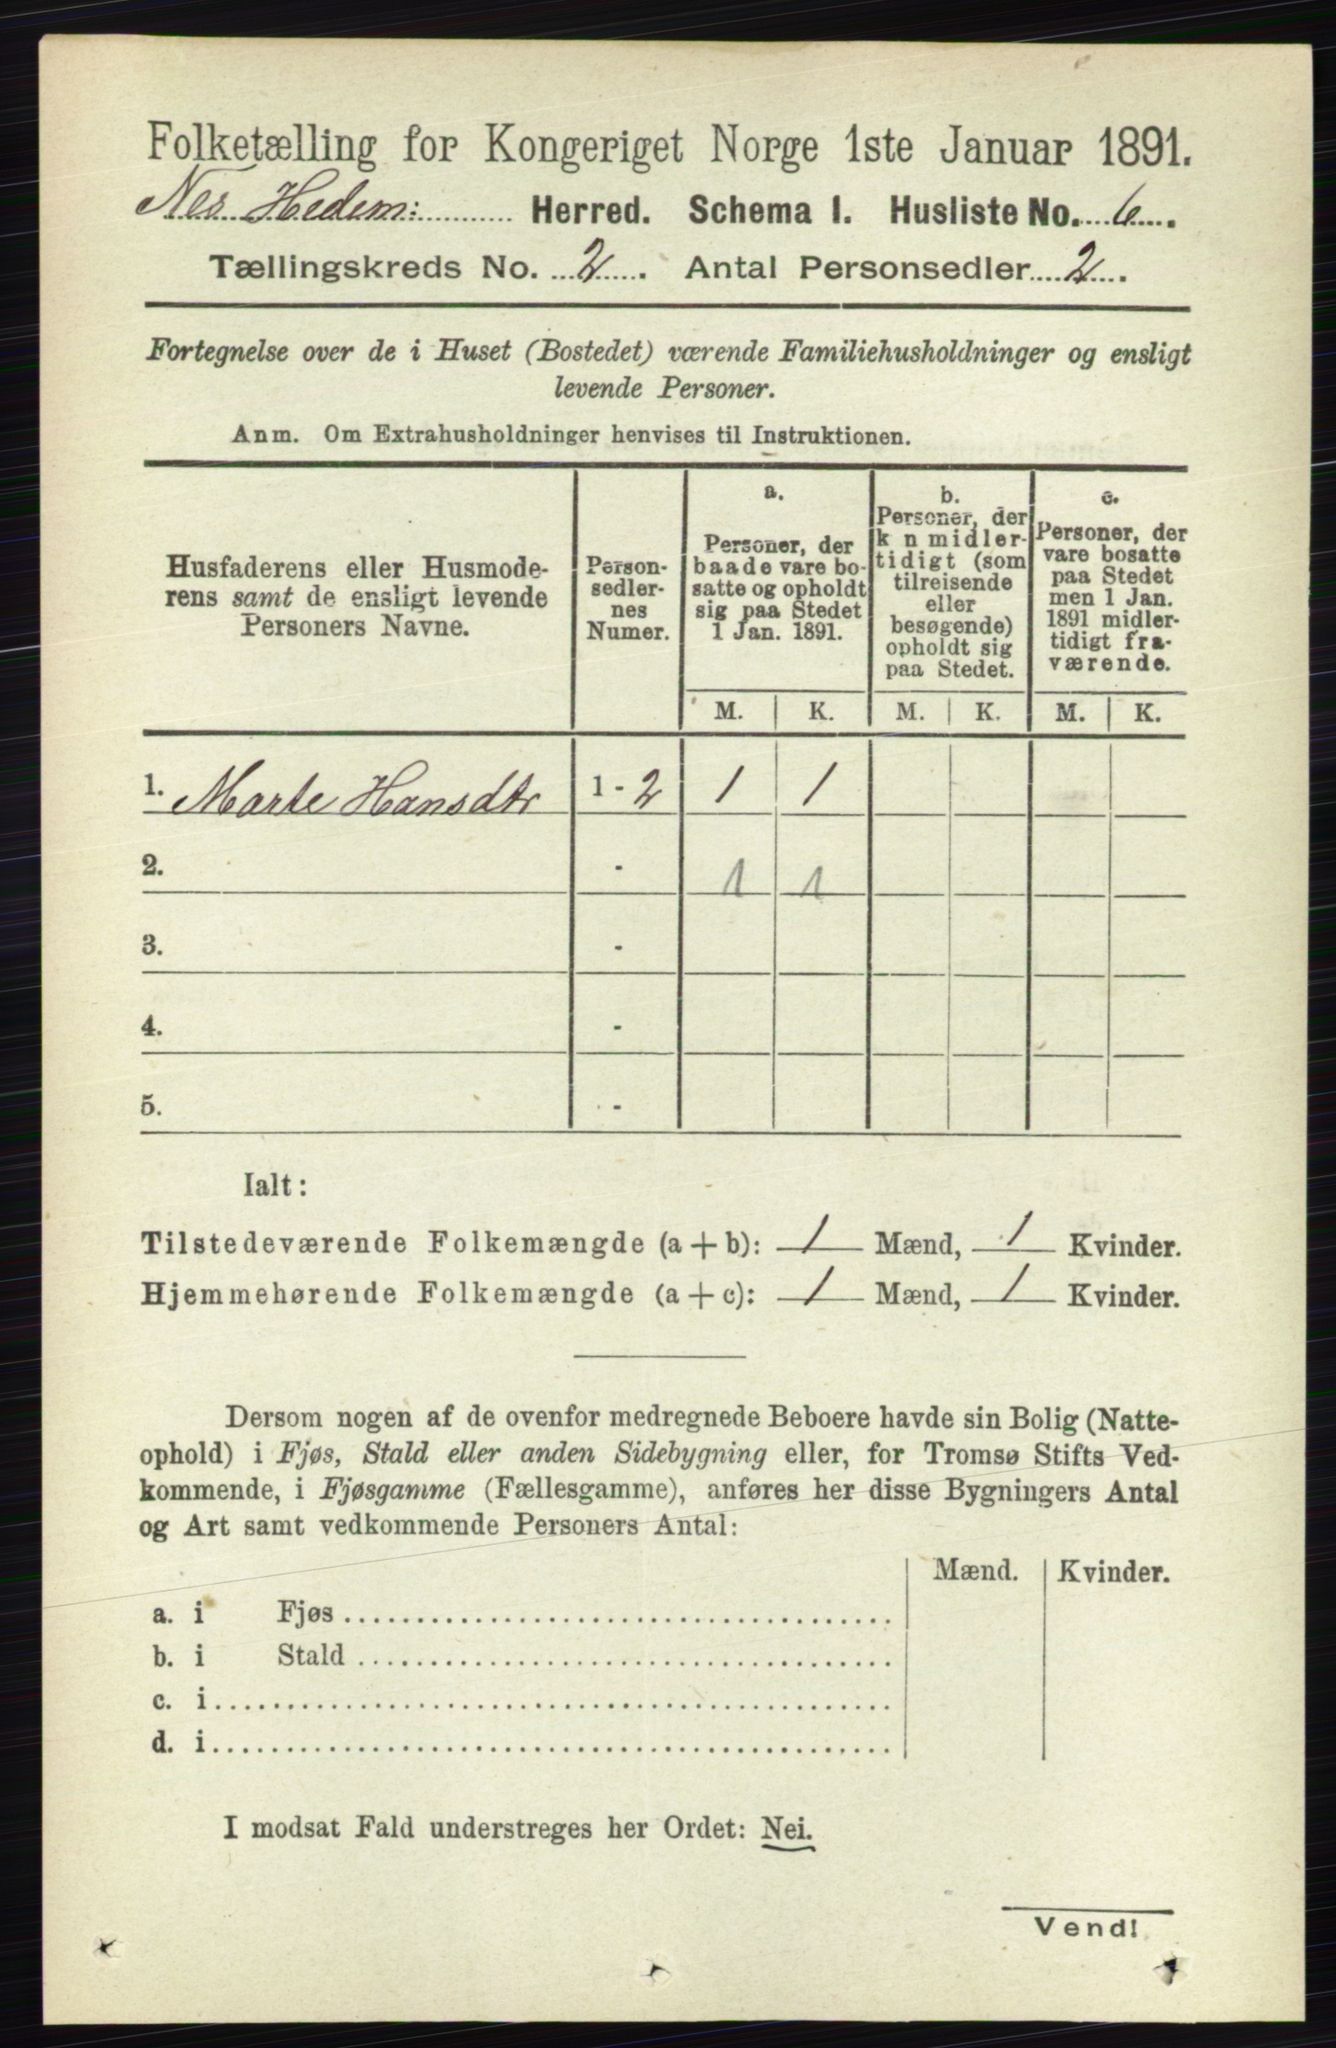 Folketælling for Kongeriget Norge 1ste Januar 1891.
Nes Hedem: Herred. Schema I. Husliste No. 6.
Tællingskreds No. 2. Antal Personsedler 2.
Fortegnelse over de i Huset (Bostedet) værende Familiehusholdninger og ensligt
levende Personer.
Anm. Om Extrahusholdninger henvises til Instruktionen.
Husfaderens eller Husmode-
rens samt de ensligt levende
Personers Navne.
Person-
sedler-
nes
Numer.
a.
Personer, der
baade vare bo-
satte og opholdt
sig paa Stedet
1 Jan. 1891.
b.
Personer, der
k n midler-
tidigt (som
tilreisende
eller
besøgende)
opholdt sig
paa Stedet.
c.
Personer, der
vare bosatte
paa Stedet
men 1 Jan.
1891 midler-
tidigt fra-
værende.
M. K. M. K. M. K.
1. Marte Hansdtr 1 - 2 1 1
2. - 1 1
3. -
4. -
5. -
Ialt:
Tilstedeværende Folkemængde (a + b): 1 Mænd, 1 Kvinder.
Hjemmehørende Folkemængde (a + c): 1 Mænd, 1 Kvinder.
Dersom nogen af de ovenfor medregnede Beboere havde sin Bolig (Natte-
ophold) i Fjøs, Stald eller anden Sidebygning eller, for Tromsø Stifts Ved-
kommende, i Fjøsgamme (Fællesgamme), anføres her disse Bygningers Antal
og Art samt vedkommende Personers Antal:
Mænd. Kvinder.
a. i Fjøs
b. i Stald
c. i
d. i
I modsat Fald understreges her Ordet: Nei.
Vend!